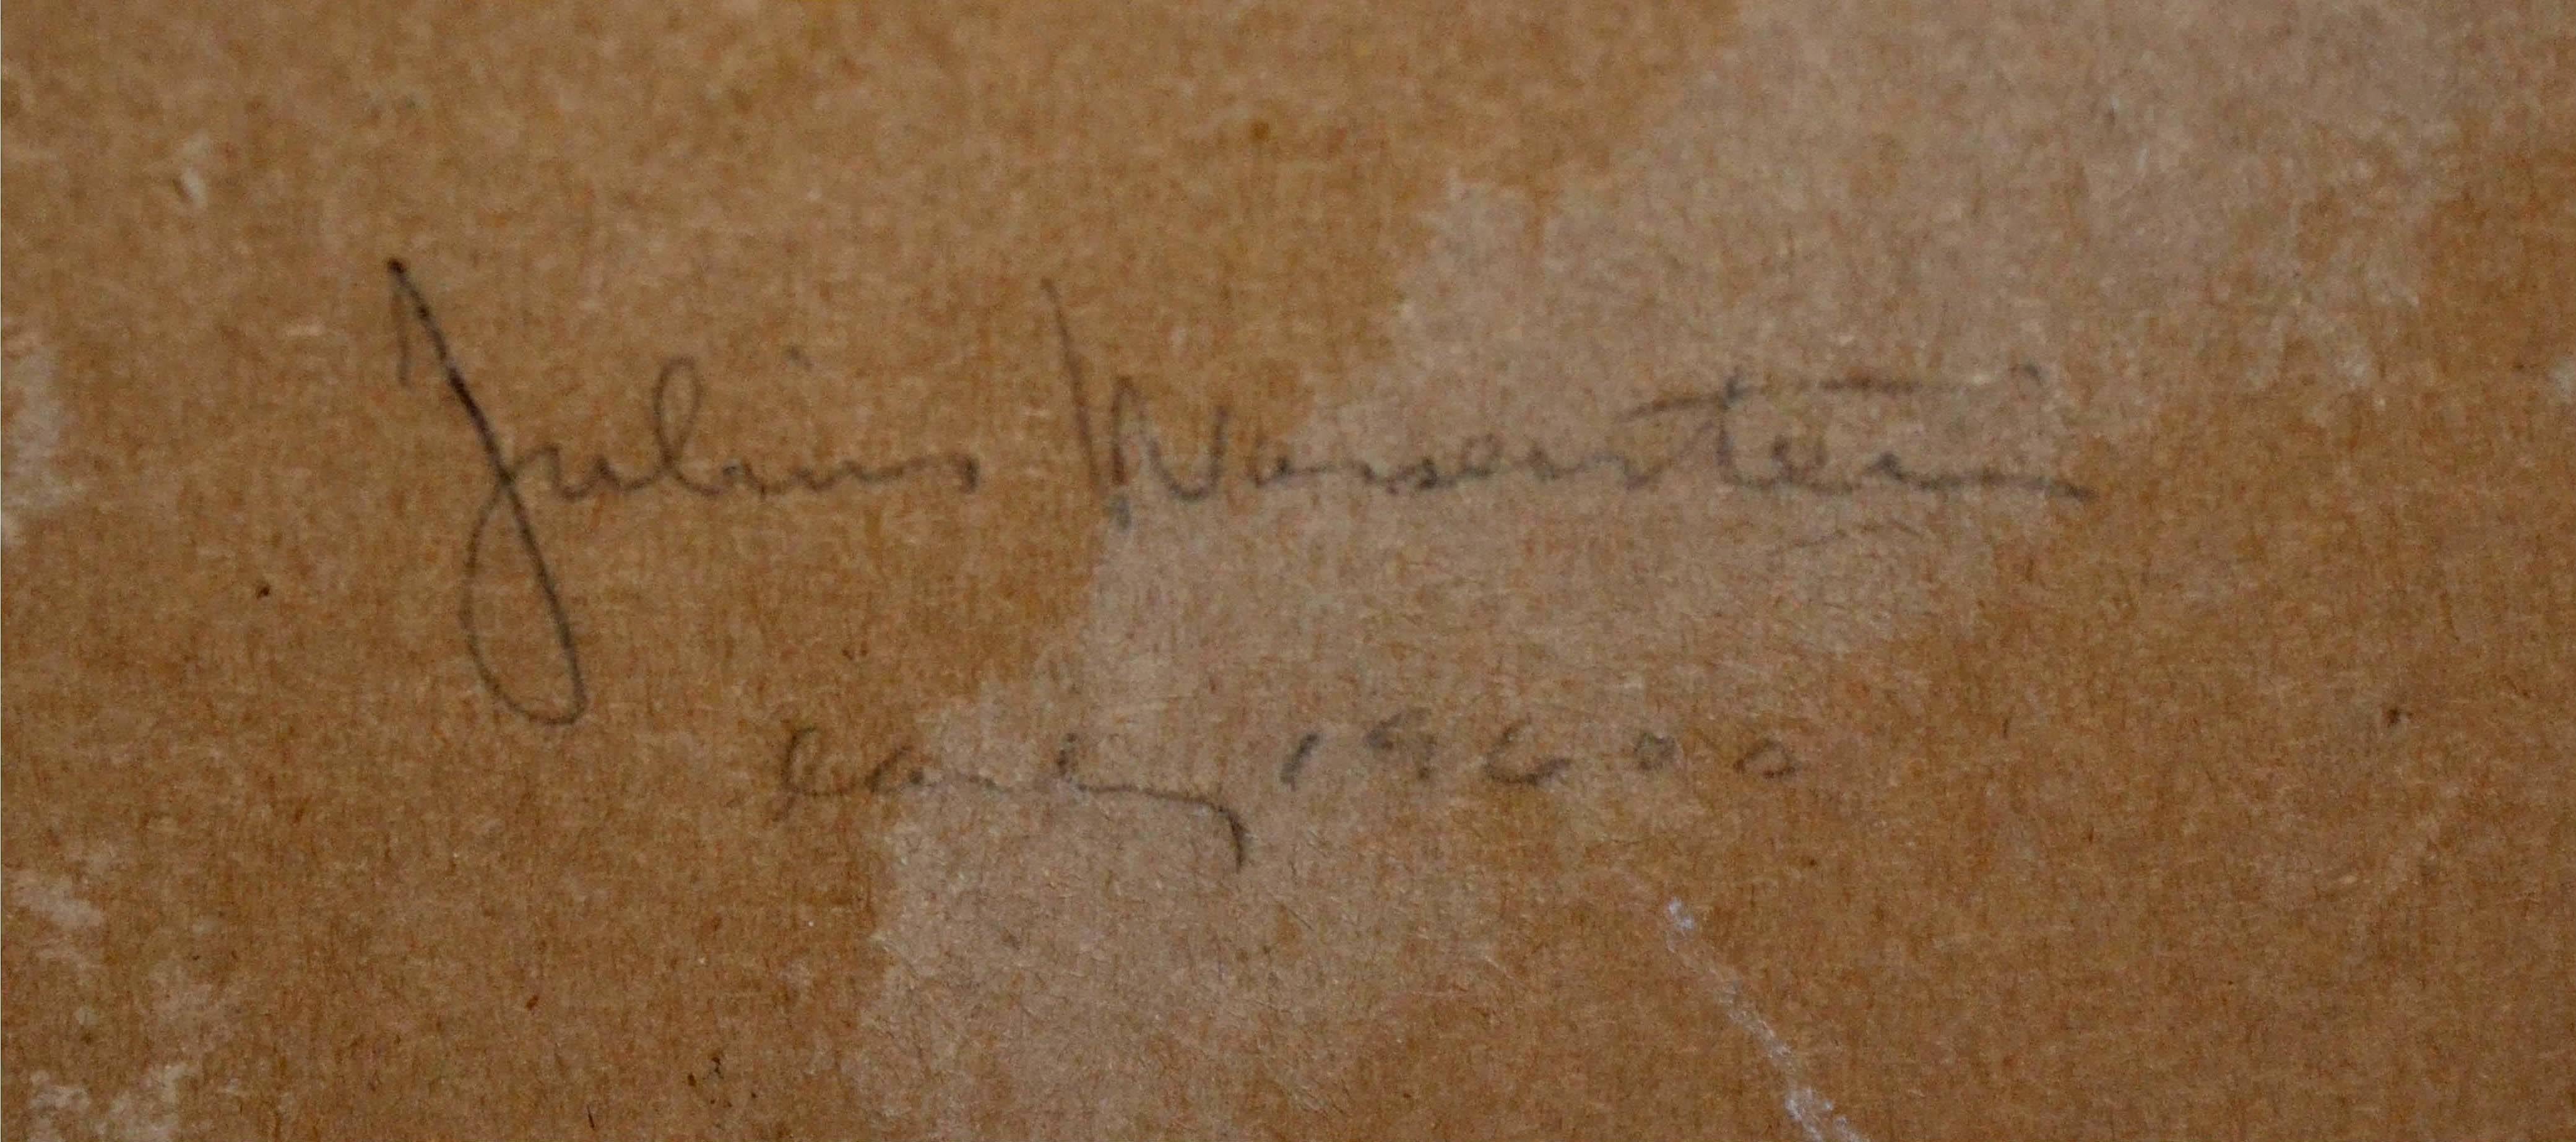 Julius Wasserstein
early 1960s